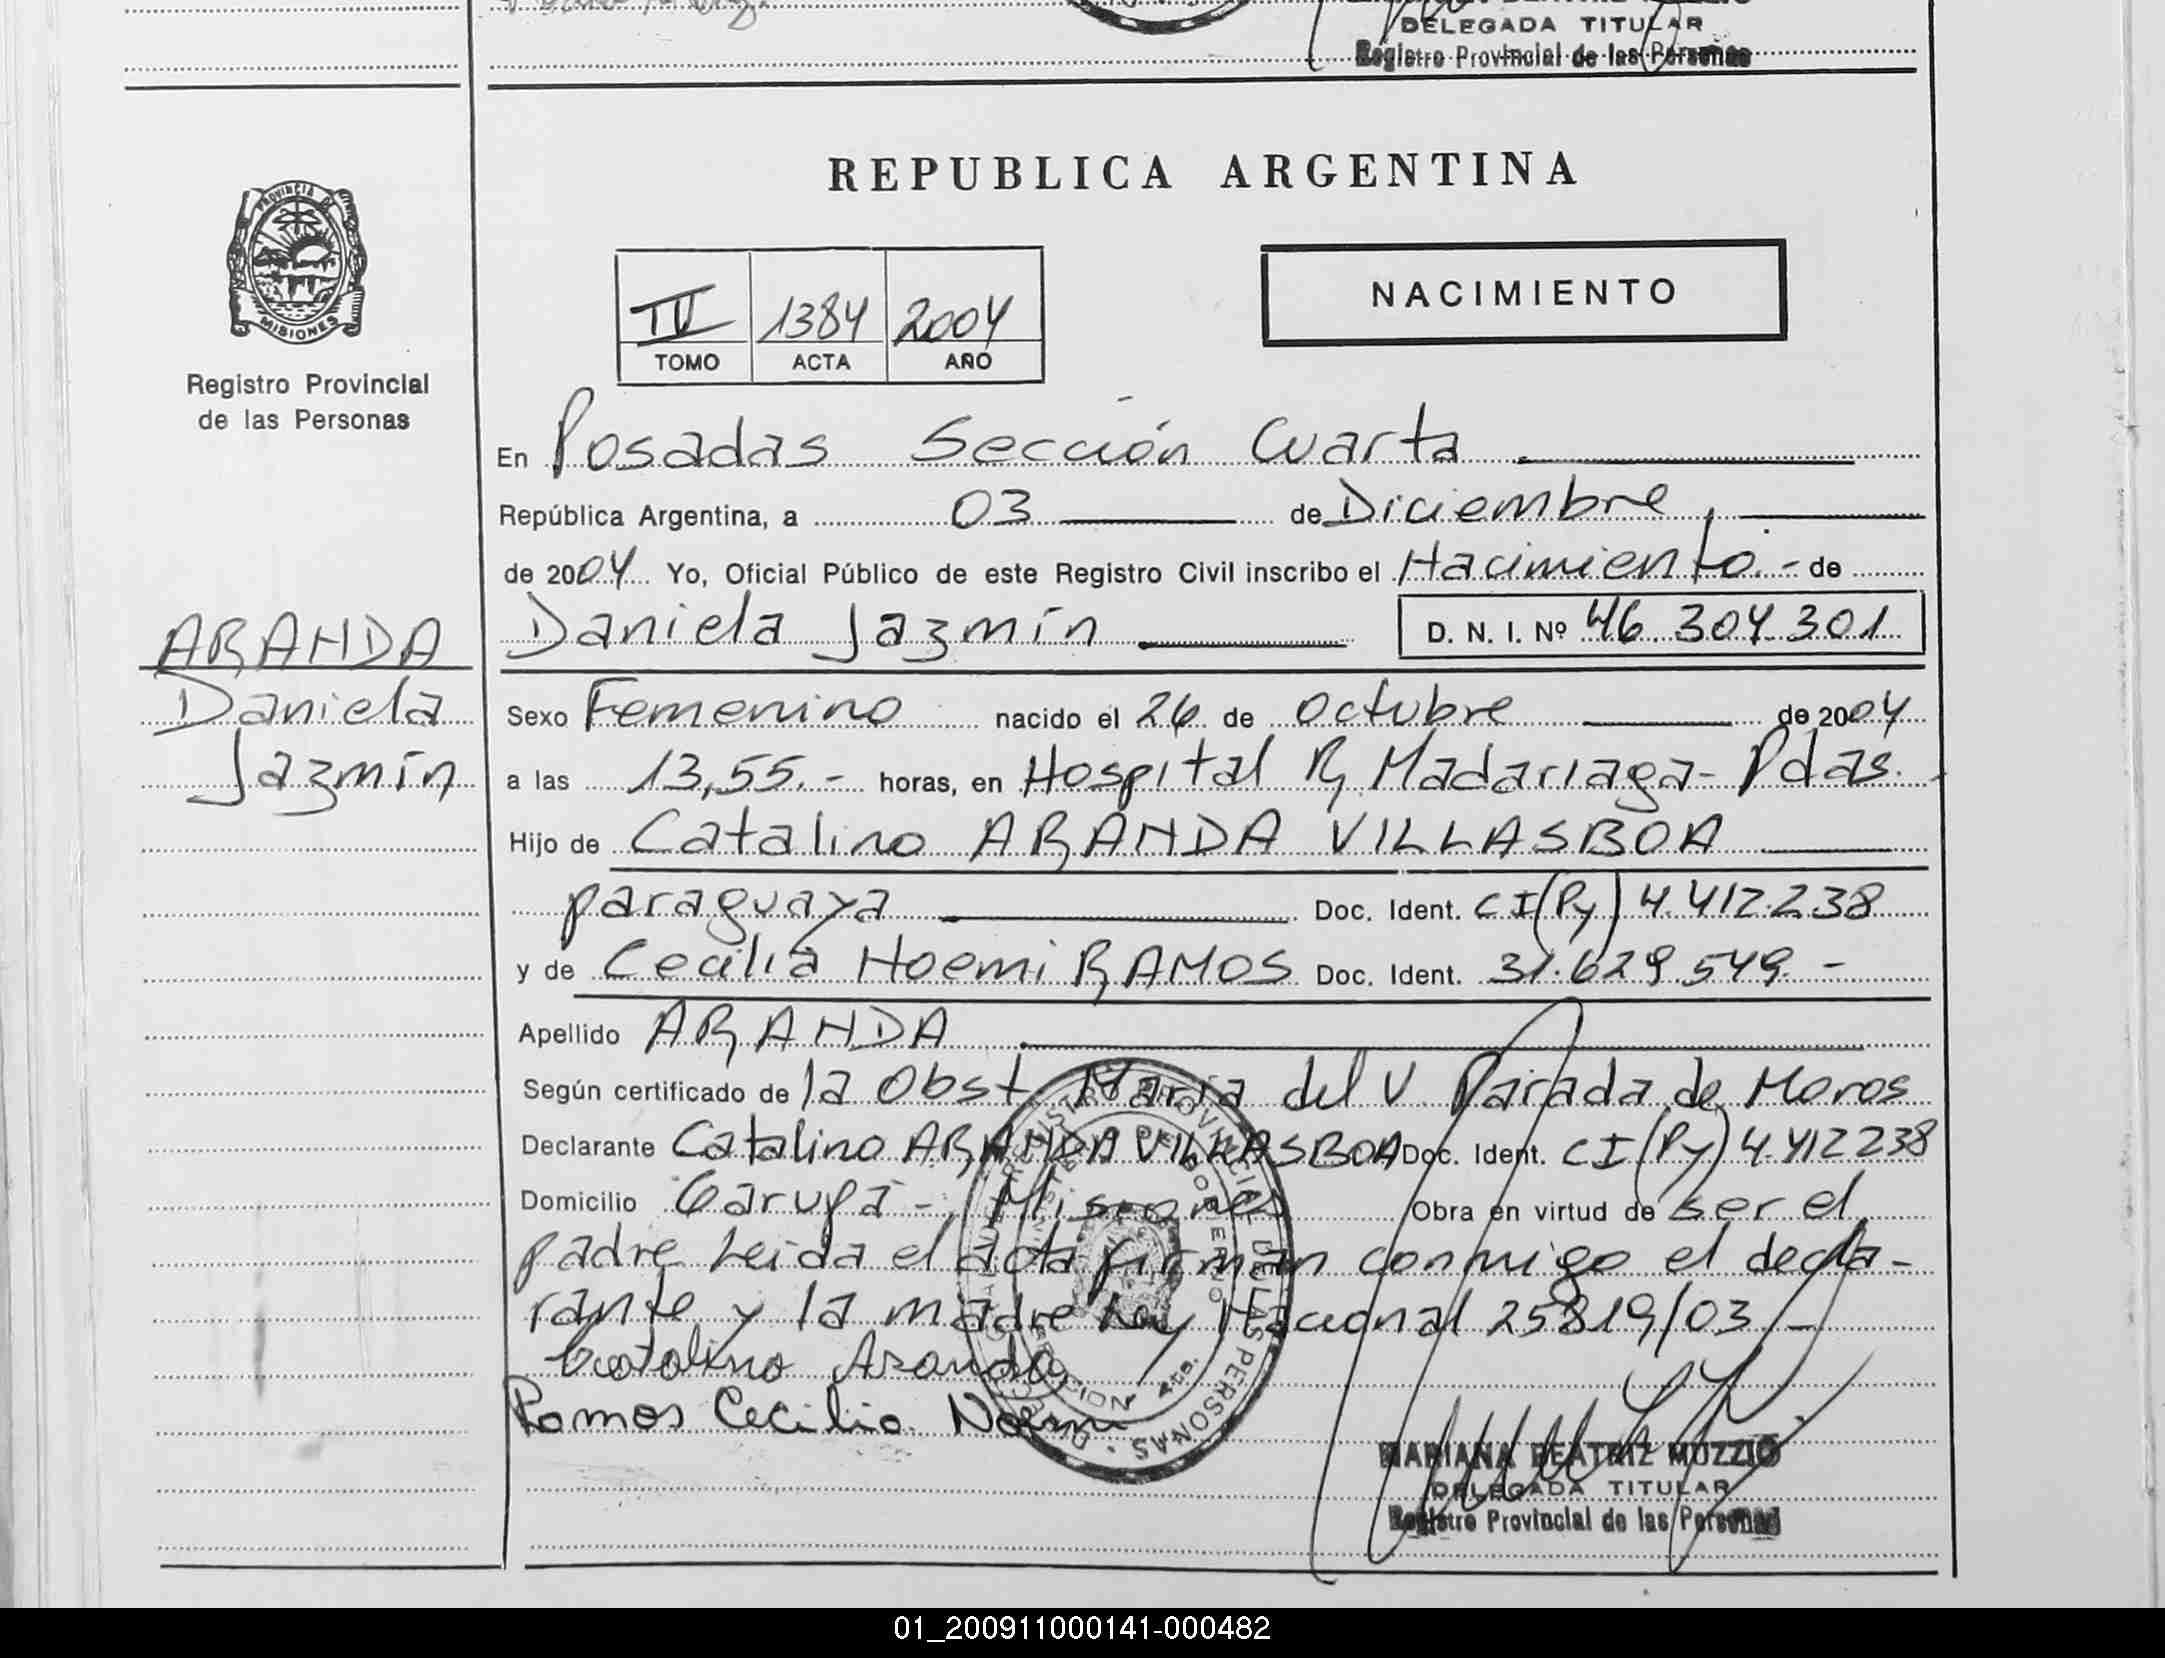 DELEGADA TITULAR
Registro Provincial de las Personas
REPUBLICA ARGENTINA
PROVINCIA DE
MISIONES
Registro Provincial
de las Personas
IV 1384 2004
TOMO ACTA AÑO
NACIMIENTO
En Posadas Sección Cuarta
República Argentina, a 03 de Diciembre
de 2004 Yo, Oficial Público de este Registro Civil inscribo el Nacimiento.- de
Daniela Jazmín D. N. I. Nº 46.304.301
ARANDA
Daniela
Jazmín
Sexo Femenino nacido el 26 de Octubre de 2004
a las 13,55.- horas, en Hospital R. Madariaga- Pdas.
Hijo de Catalino ARANDA VILLASBOA
paraguaya Doc. Ident. CI(Py) 4.412.238
y de Cecilia Noemi RAMOS Doc. Ident. 31.629.549.-
Apellido ARANDA
Según certificado de la Obst. María del V. Parada de Moros
Declarante Catalino ARANDA VILLASBOA Doc. Ident. CI(Py) 4.412238
Domicilio Garupá-. Misiones Obra en virtud de ser el
padre Leida el acta firman conmigo el decla-
rante y la madre Ley Nacional 25819/03.-
Catalino Aranda
Ramos Cecilia Noemi
MARIANA BEATRIZ MUZZIO
DELEGADA TITULAR
Registro Provincial de las Personas
01_200911000141-000482